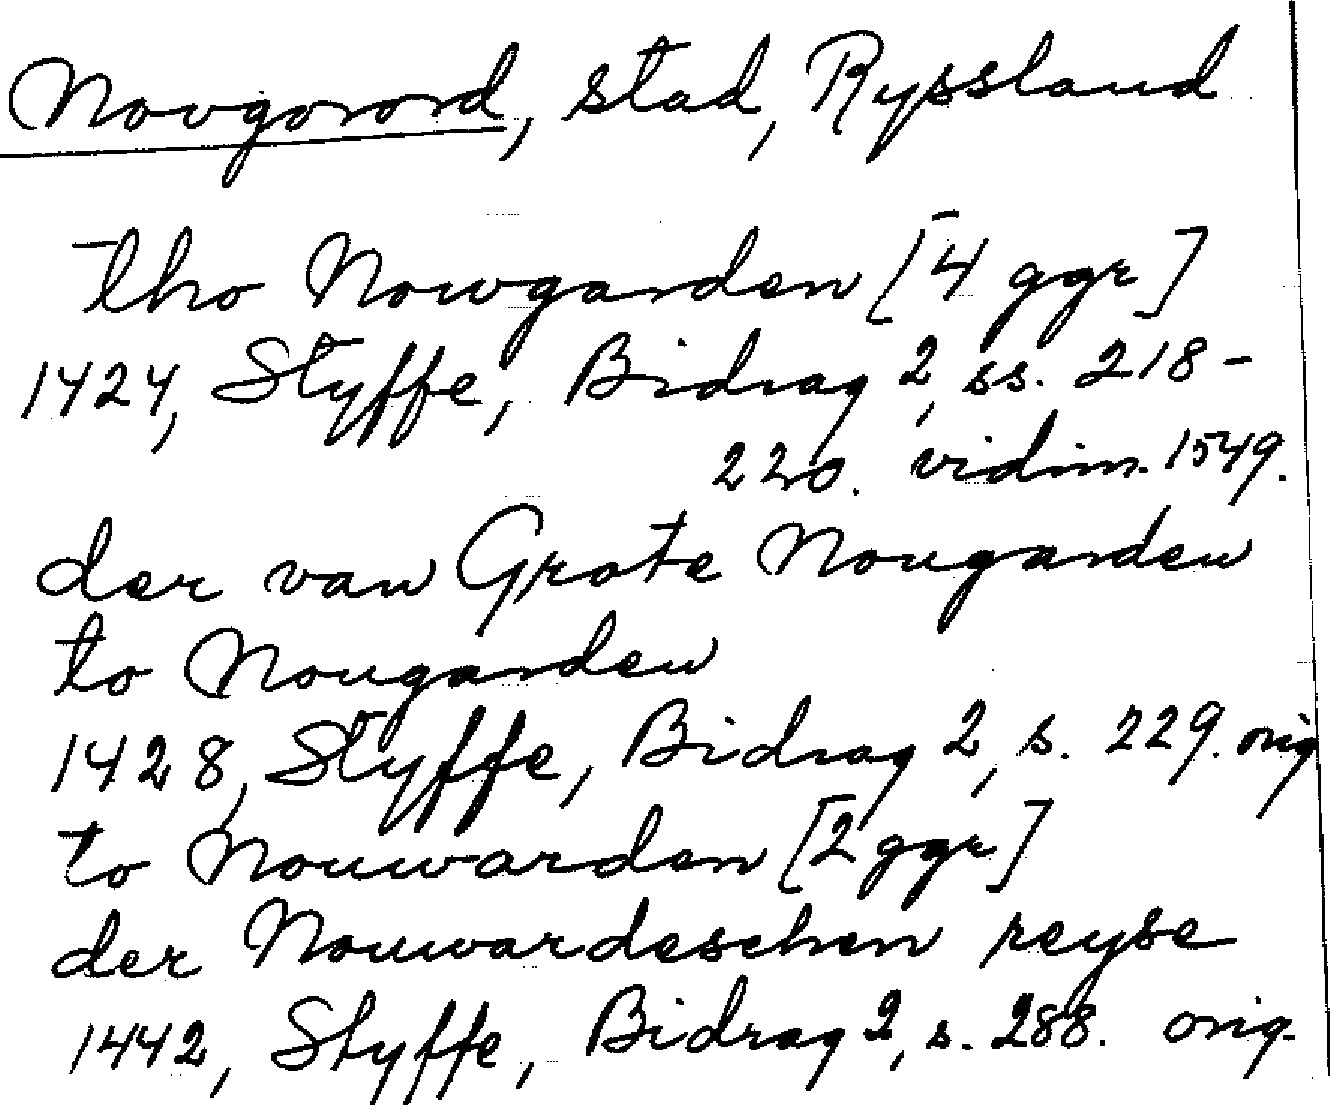 Novgorod, stad, Ryssland
tho Nowgarden [4 ggr]
1424, Styffe, Bidrag 2, ss. 218-
220. vidim. 1549.
der van Grote Nougarden
to Nougarden
1428, Styffe, Bidrag 2, s. 229. orig
to Nouwarden [2 ggr]
der Nouwardeschen reyse
1442, Styffe, Bidrag 2, s. 288. orig.